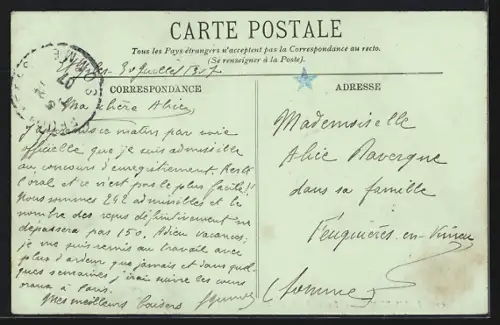 CARTE POSTALE
Tous les Pays étrangers n'acceptent pas la Correspondance au recto.
(Se renseigner à la Poste).
30 juillet 1907
CORRESPONDANCE
Ma chère Alice,
J'apprends ce matin par voie
officielle que je suis admissible
au concours d'enregistrement. Reste
l'oral et ce n'est pas le plus facile!!
Nous sommes 242 admissibles et le
nombre des reçus définitivement ne
dépassera pas 150. Adieu vacances;
je me suis remis au travail avec
plus d'ardeur que jamais et dans quel-
ques semaines, j'irai suivre les cours
à Paris.
Mes meilleurs baisers
ADRESSE
Mademoiselle
Alice Davergne
dans sa famille
Feuquières-en-Vimeu
(Somme)